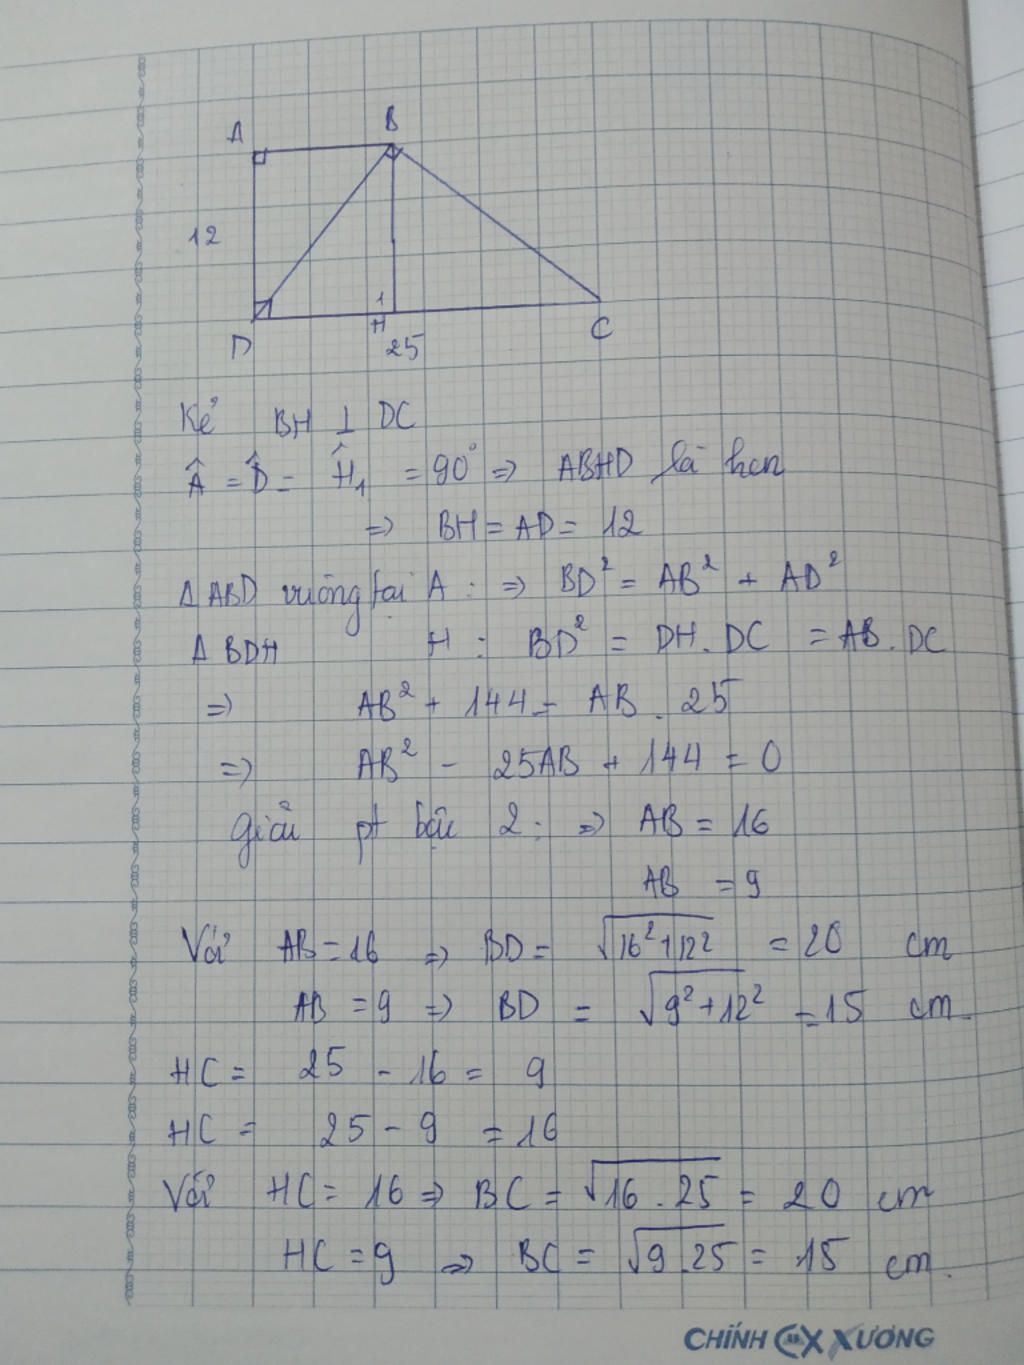 A B
12
1
H
D 25 C
Kẻ BH ⊥ DC
Â = D̂ = Ĥ₁ = 90° => ABHD là hcn
=> BH = AD = 12
Δ ABD vuông tại A : => BD² = AB² + AD²
Δ BDH H : BD² = DH . DC = AB . DC
=> AB² + 144 = AB . 25
=> AB² - 25AB + 144 = 0
Giải pt bậc 2 : => AB = 16
AB = 9
Với AB = 16 => BD = √16² + 12² = 20 cm
AB = 9 => BD = √9² + 12² = 15 cm
HC = 25 - 16 = 9
HC = 25 - 9 = 16
Với HC = 16 => BC = √16 . 25 = 20 cm
HC = 9 => BC = √9 . 25 = 15 cm.
CHÍNH XƯƠNG